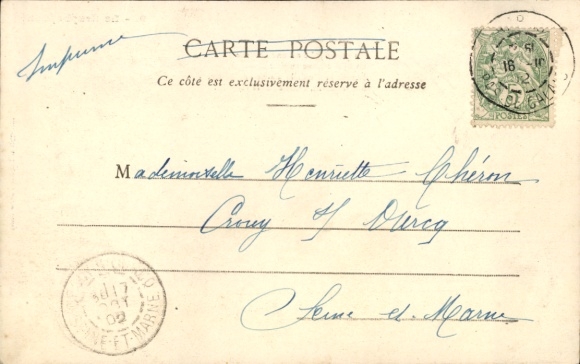 Imprimé
CARTE POSTALE
Ce côté est exclusivement réservé à l'adresse
Mademoiselle Henriette Chéron
Crouy s/ Ourcq
Seine et Marne
POSTES
17
OCT
02
SEINE-ET-MARNE